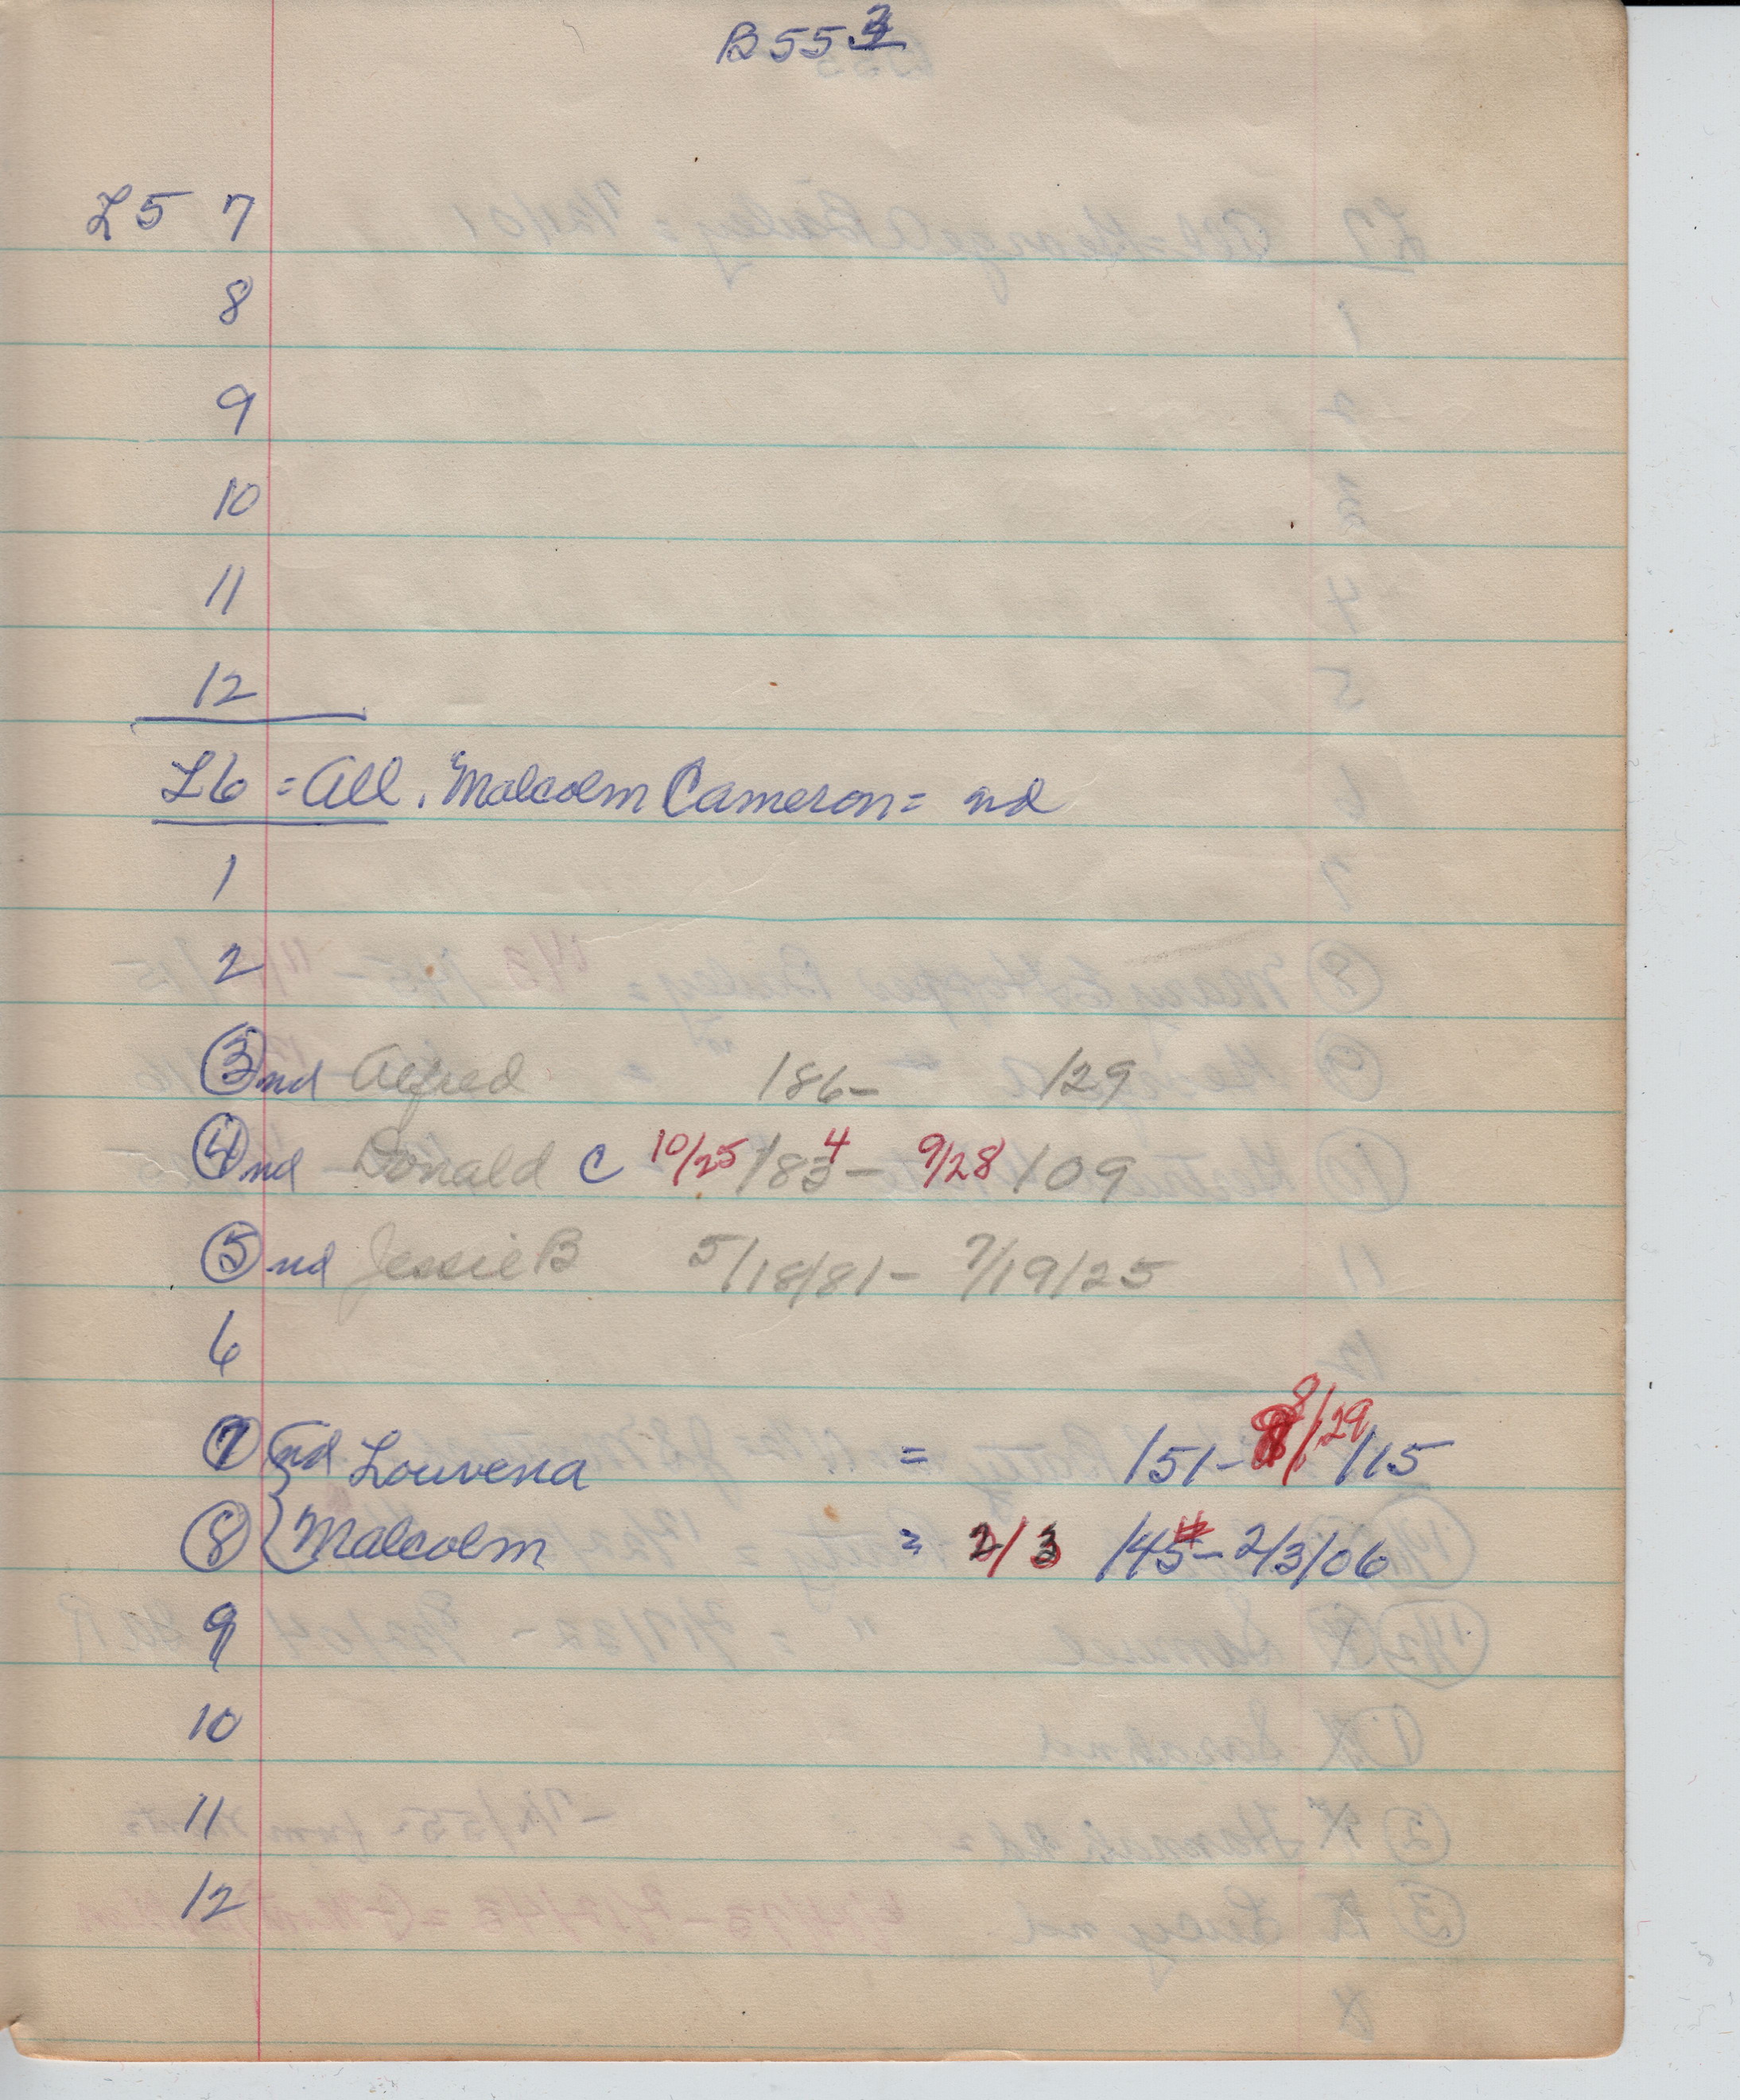 B55
L5 7
8
9
10
11
12
L6 = All. Malcolm Cameron = nd
1
2
3 nd Alfred /86- /29
4 nd Donald C 10/25 /834 - 9/28 /09
5 nd Jessie B 5/18/81 - 7/19/25
6
7 nd Louvena = /51 - 8/29 /15
8 Malcolm = 2/3 /45 - 2/3/06
9
10
11
12